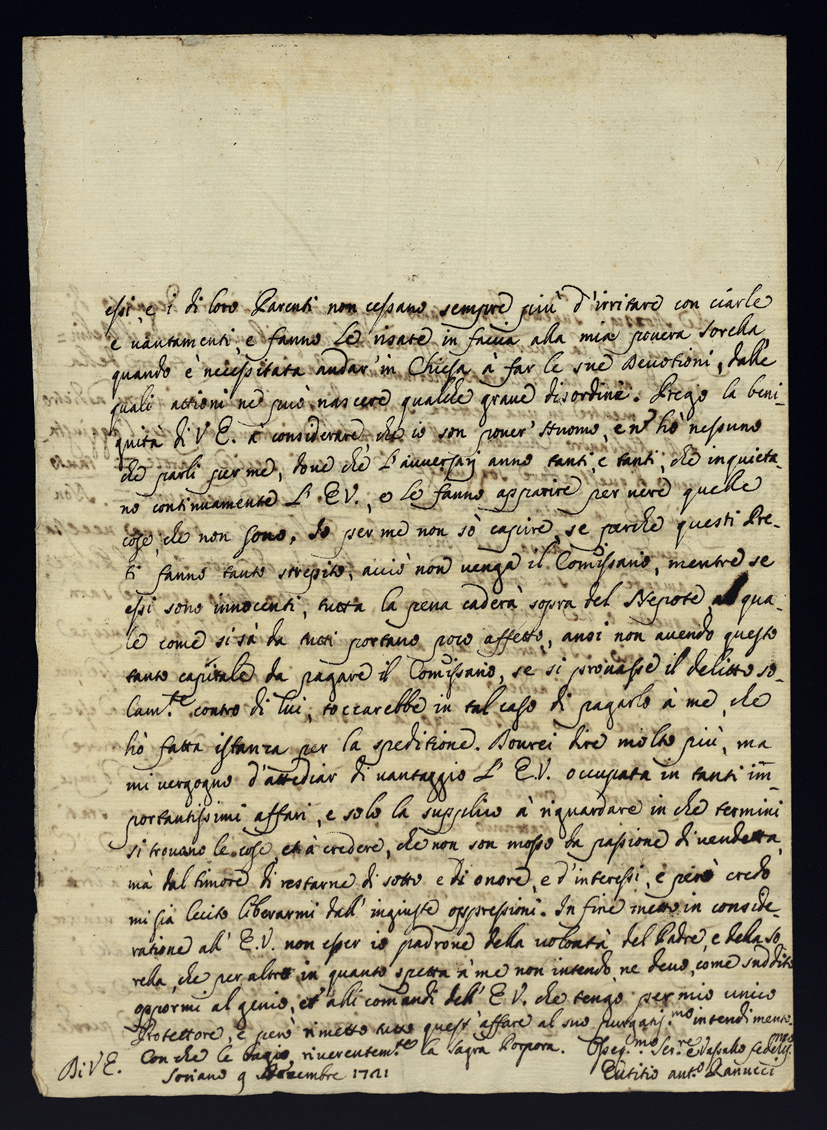 essi e i di loro Parenti non cessano sempre più d'irritare con ciarle
e vantamenti e fanno le risate in faccia alla mia povera sorella
quando è necessitata andar' in Chiesa à far le sue Devotioni, dalle
quali attioni ne può nascere qualche grave disordine. Prego la beni-
gnità di V E. à considerare, che io son pover' Huomo, e nõ hò nessuno
che parli per me, dove che l'avversarj anno tanti, e tanti, che inquieta-
no continuamente l' E V., e le fanno apparire per vere quelle
cose, che non sono. Io per me non sò capire, se perche questi Pre-
ti fanno tanto strepito, acciò non venga il Comissario, mentre se
essi sono innocenti, tutta la pena caderà sopra del Nepote, al qua-
le come si sà da tutti portano poco affetto, anzi non avendo questo
tanto capitale da pagare il Comissario, se si provasse il delitto so-
lam.te contro di lui, toccarebbe in tal caso di pagarlo à me, che
hò fatta istanza per la speditione. Dovrei dire molto più, ma
mi vergogno d'attediar di vantaggio l' E.V. occupata in tanti im-
portantissimi affari, e solo la supplico à riguardare in che termini
si trovano le cose, et à credere, che non son mosso da passione di vendetta,
mà dal timore di restarne di sotto e di onore, e d'interessi, e però credo
mi sia lecito liberarmi dall' ingiuste oppressioni. In fine metto in conside-
ratione all' E.V. non esser io padrone della volontà del Padre, e della so
rella, che per altro in quanto spetta à me non intendo, ne devo, come suddito
oppormi al genio, et alli comandi dell' E.V. che tengo per mio unico
Protettore, e però rimetto tutto quest' affare al suo purgatis.mo intendimento.
Con che le bagio riverentem.te la sagra Porpora. Osseq.mo Ser.re e Vassallo fedelis.mo
Di V E. Soriano 9 Dicembre 1721 Eutitio Ant.o Ranucci